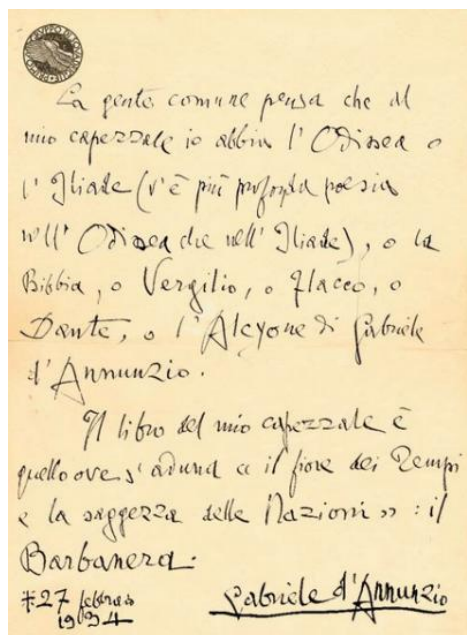 La gente comune pensa che al
mio capezzale io abbia l'Odissea o
l'Iliade (v'è più profonda poesia
nell'Odissea che nell'Iliade), o la
Bibbia, o Vergilio, o Flacco, o
Dante, o l'Alcyone di Gabriele
d'Annunzio.
Il libro del mio capezzale è
quello ove s'aduna « il fiore dei Tempi
e la saggezza delle Nazioni » : il
Barbanera.
27 febbraio
1934
Gabriele d'Annunzio